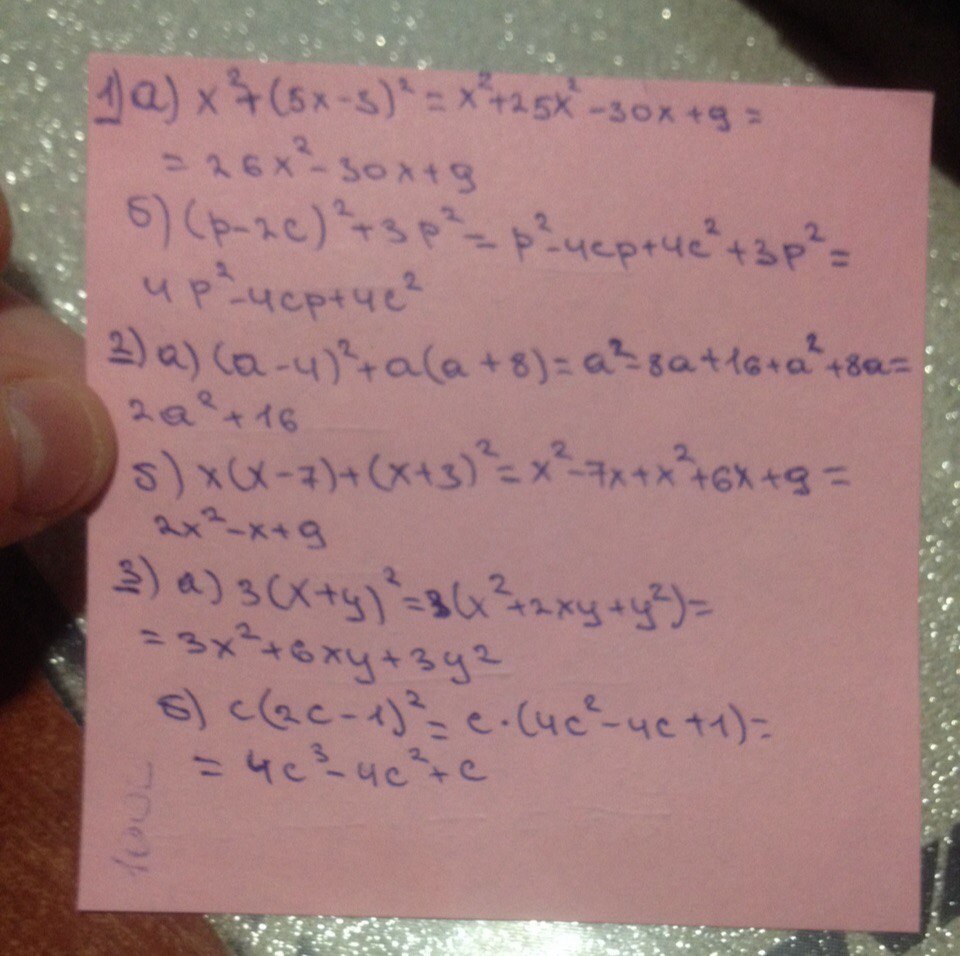 1) а) x²+(5x-3)²=x²+25x²-30x+9=
=26x²-30x+9
б) (p-2c)²+3p²=p²-4cp+4c²+3p²=
4p²-4cp+4c²
2) а) (a-4)²+a(a+8)=a²-8a+16+a²+8a=
2a²+16
б) x(x-7)+(x+3)²=x²-7x+x²+6x+9=
2x²-x+9
3) а) 3(x+y)²=3(x²+2xy+y²)=
=3x²+6xy+3y²
б) c(2c-1)²=c·(4c²-4c+1)=
=4c³-4c²+c